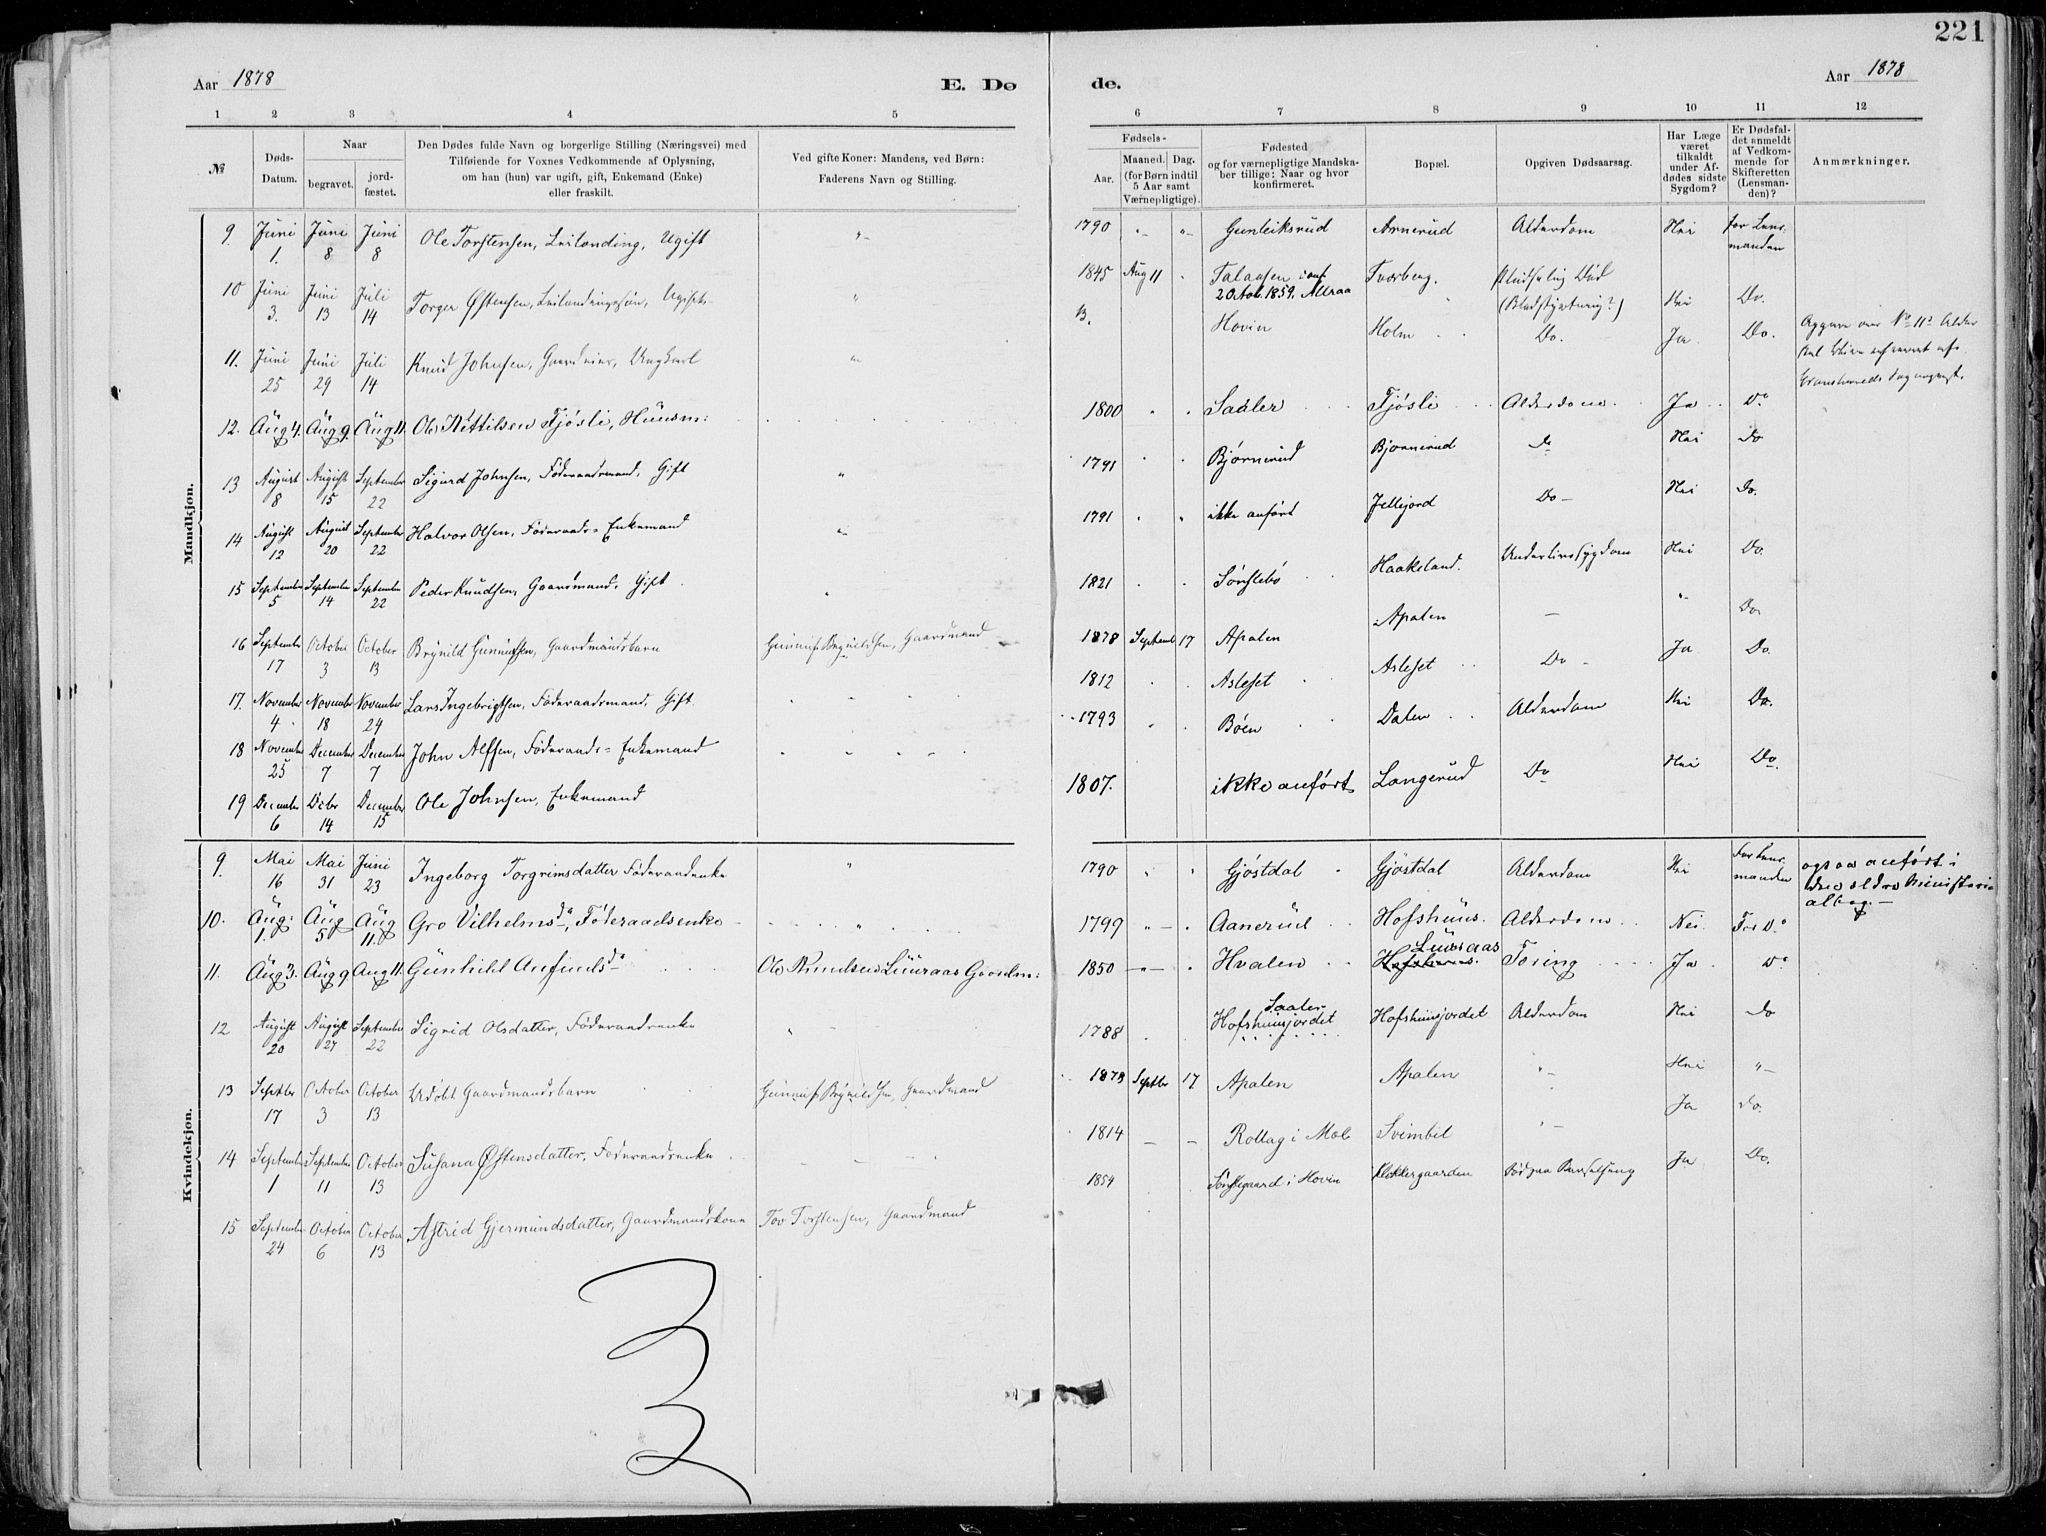 221
Aar 1878
E. Dø
de.
Aar 1878
1 2 3 4 5
6 7 8 9 10 11 12
№
Døds-Datum.
Naar
begravet.
jord-fæstet.
Den Dødes fulde Navn og borgerlige Stilling (Næringsvei) med
Tilføiende for Voxnes Vedkommende af Oplysning,
om han (hun) var ugift, gift, Enkemand (Enke)
eller fraskilt.
Ved gifte Koner: Mandens, ved Børn:
Faderens Navn og Stilling.
Fødsels-
Aar.
Maaned. Dag.
(for Børn indtil
5 Aar samt
Værnepligtige).
Fødested
og for værnepligtige Mandska-
ber tillige: Naar og hvor
konfirmeret.
Bopæl.
Opgiven Dødsaarsag.
Har Læge
været
tilkaldt
under Af-
dødes sidste
Sygdom?
Er Dødsfal-
det anmeldt
af Vedkom-
mende for
Skifteretten
(Lensman-
den)?
Anmærkninger.
Mandkjøn.
9. Juni 1. Juni 8 Juni 8 Ole Torstensen, Leilending, Ugift "- 1790 "- "- Gunleiksrud Arnerud Alderdom Nei for Lens-
manden
10 Juni 3. Juni 13 Juli 14 Torger Østensen, Leilendingssøn, Ugift " 1845 Aug 11 Talaasen conf. 2 Octob. 1859, Atraa Tvørberg. Pludselig Død
(Blodstyrtning?) Nei Do.
11. Juni 25 Juni 29 Juli 14 Knud Johnsen, Gaardeier, Ungkarl "- B. Hovin Holm Do. Ja Do. Opgave over No 11s Alder
12. Aug 4. Aug 9. Aug 11. Ole Kittilsen Fjøsli, Huusm: 1800 Saaler Fjøsli Alderdom Ja Do
13 August 8 August 15 September 22 Sigurd Johnsen, Føderaadsmand, Gift " 1791 Bjørnerud Bjørnerud Do Nei Do
14 August 12 August 20 September 22 Halvor Olsen, Føderaads= Enkemand "- 1791 ikke anført Jellejord Do- Nei Do.
15 September 5 September 14 September 22 Peder Knudsen, Gaardmand, Gift " 1821 Sørslebø Haakeland. Underlivssygdom Nei Do.
16 September 17 October 3 October 13 Brynild Gunnufsen, Gaardmandsbarn Gunnuf Brynildsen, Gaardmand 1878 Septemb 17 Apalen Apalen - "- Do
17. November 4 November 18 November 24 Lars Ingebrigtsen, Føderaadsmand, Gift 1812 Asleset Asleset Do - Ja Do
18 November 25 December 7 December 7 John Alfsen, Føderaads= Enkemand 1793 Bøen Dalen Alderdom Nei Do.
19 December 6 Decbr 14 December 15 Ole Johnsen, Enkemand 1807. ikke anført Langerud Do Nei Do.
Kvindekjøn.
9. Mai 16 Mai 31 Juni 23 Ingeborg Torgrimsdatter Føderaadenke " 1790 " " Gjøstdal Gjøstdal Alderdom Nei For Lens-
manden ogsaa anført i
den ældre Ministeri
albog.-
10. Aug: 1. Aug 5 Aug 11. Gro Vilhelmsda, Føderaadsenke 1799 Aanerud Hofshuus. Alderdom Nei For Do
11. Aug 3. Aug 9 Aug 11. Gunhild Anfindsda Ole Knudsen Luuraas Gaardm: 1850 Hvalen Luuraas
Hofshuus. Tæring Ja Do
12 August 20 August 27 September 22 Sigrid Olsdatter, Føderaadenke " " 1788 Saaler
Hofshuusjordet Hofshuusjordet Alderdom Nei Do
13 Septbr 17 October 3 October 13 Udøbt Gaardmandsbarn Gunnuf Brynildsen, Gaardmand 1878 Septbr 17 Apalen Apalen "- Nei "-
14 September 1 September 11 October 13 Susana Østensdatter, Føderaadenke 1814 - - Rollag i Mæl Svimbil "- Ja Do.
15 September 24 October 6 October 13 Astrid Gjermundsdatter, Gaardmandskone Tov Torstensen, Gaardmand 1854 Sørstegaard i Hovin Klokkergaarden Død paa Barselseng Ja Do.